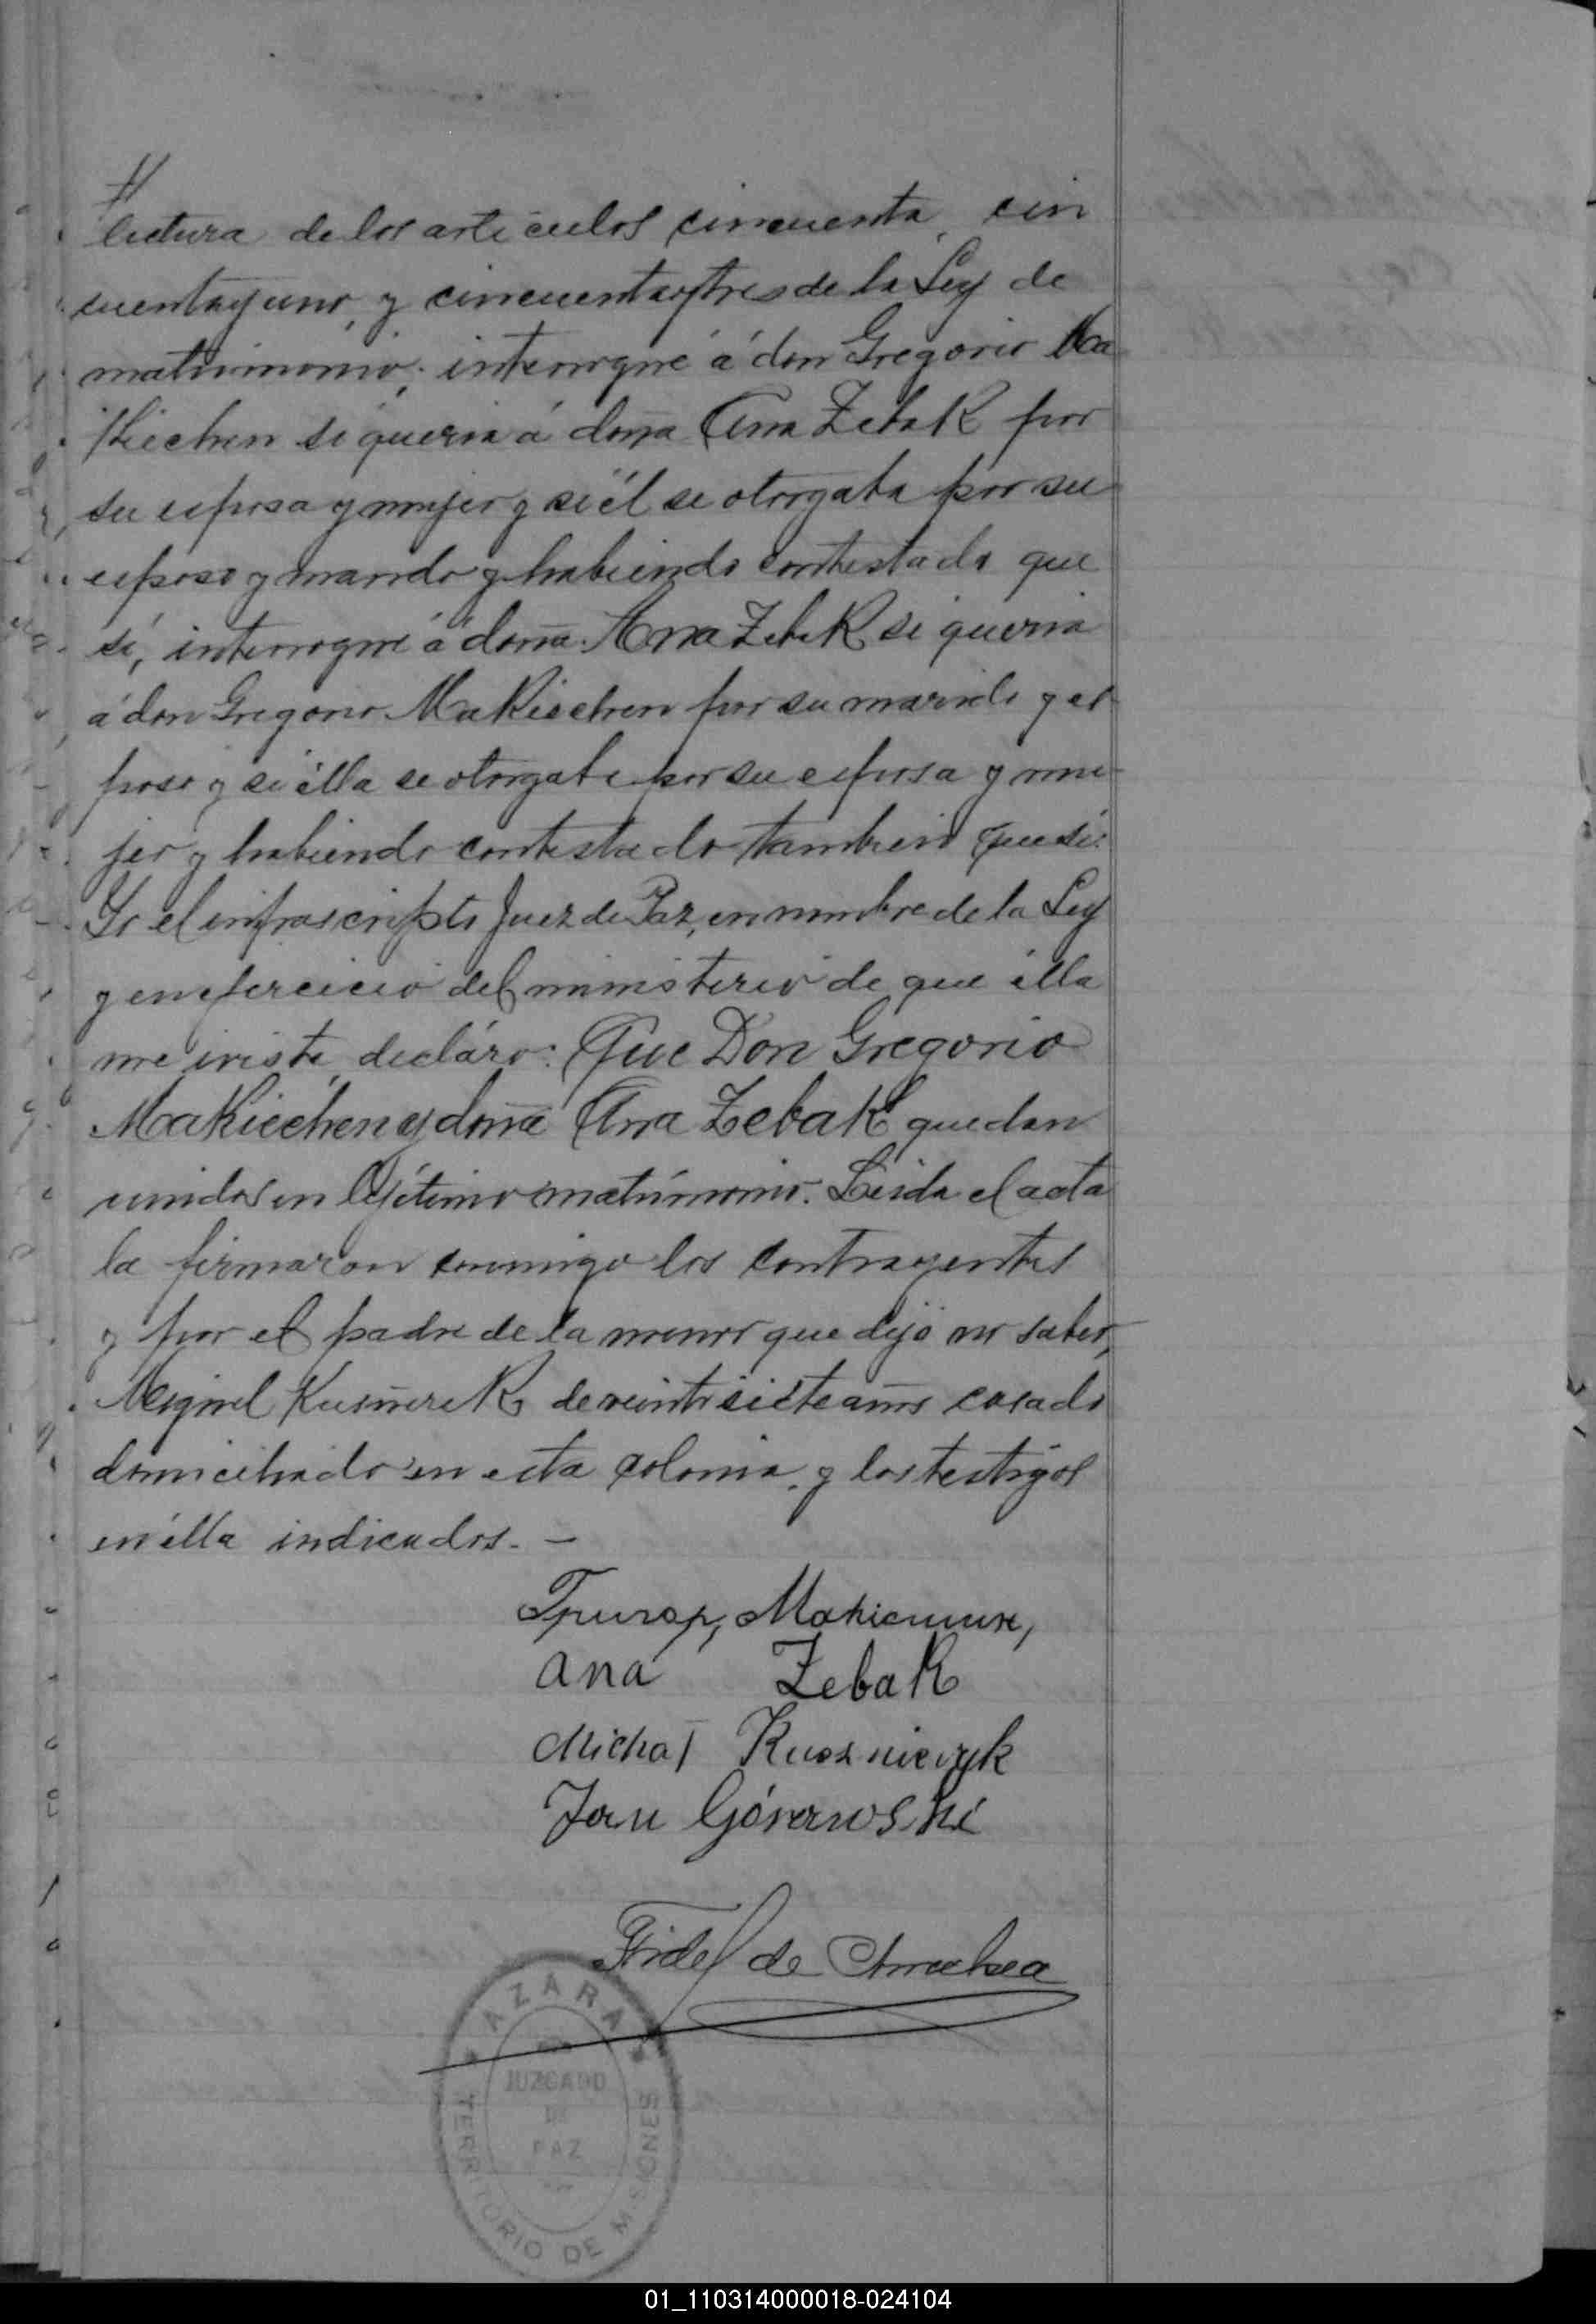 //
lectura de los articulos cincuenta, cin
cuentayuno, y cincuentaytres de la Ley de
matrimonio; interrogué á don Gregorio Ma
Kiechen si queria á doña Ana Zebak por
su esposa y mujer y si él se otorgaba por su
esposo y marido y habiendo contestado que
sí, interrogué á doña Ana Zebak si queria
á don Gregorio Makiechen por su marido y es
poso y si élla se otorgaba por su esposa y mu-
jer y habiendo contestado tambien que sí:
Yo el infrascripto Juez de Paz, en nombre de la Ley
y en ejercicio del ministerio de que élla
me iviste, decláro: Que Don Gregorio
Makiechen y doña Ana Zebak quedan
unidos en lejítimo matrimonio. Leida el acta
la firmaron conmigo los contrayentes
y por el padre de la menor que dijo no saber,
Miguel Kusñerek de veintisiete años casado
domiciliado en esta colonia, y los testigos
en élla indicados. —
Григор, Макиешин,
Ana Zebak
Michał Kuszniczyk
Jan Górawski
Fidel de Arrechea
AZARA
JUZGADO
DE
PAZ
TERRITORIO DE MISIONES
01_110314000018-024104